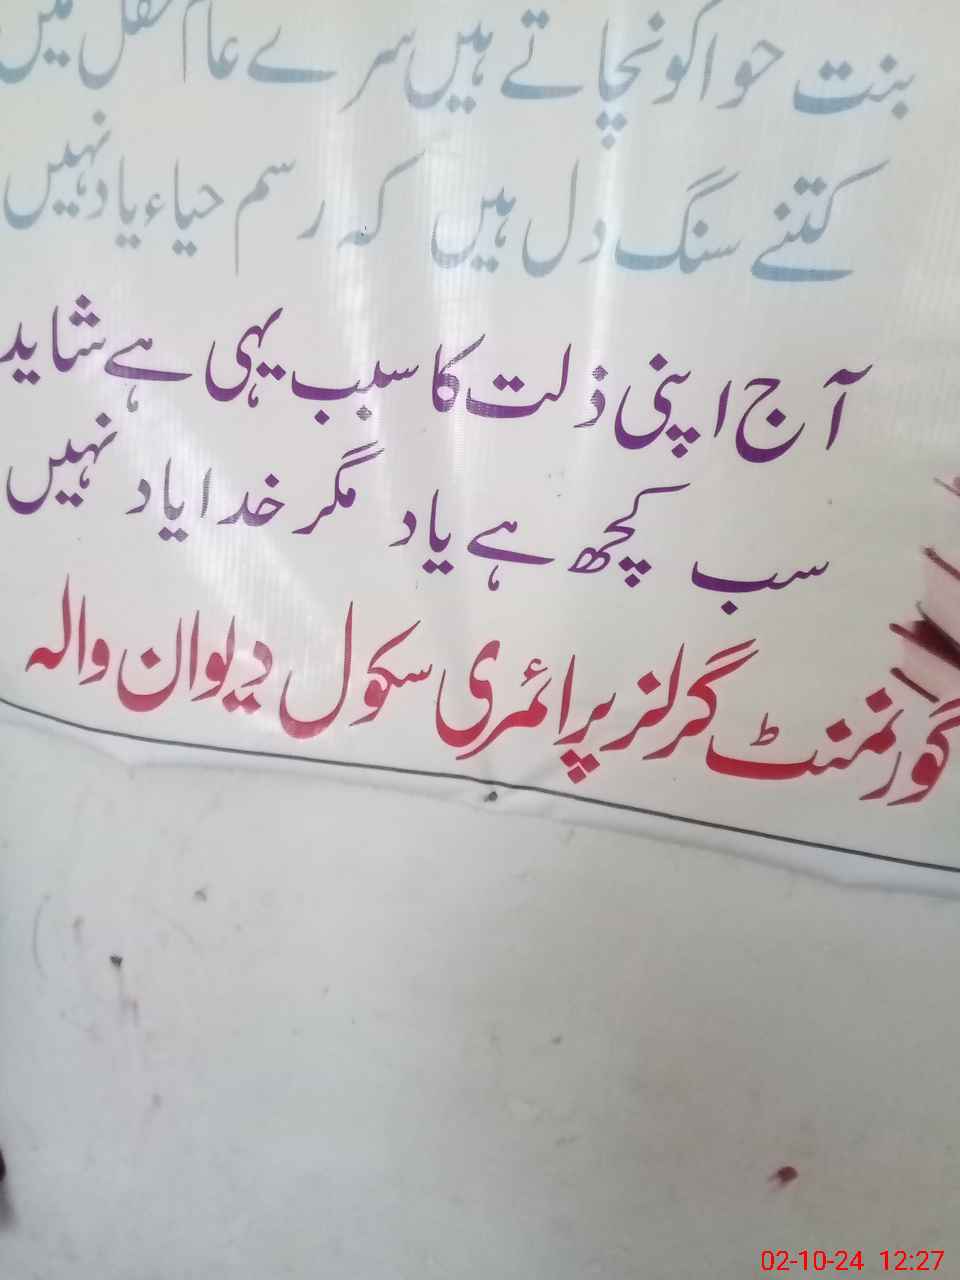 بنت حوا کو نچاتے ہیں سرے عام محفل میں
کتنے سنگ دل ہیں کہ رسم حیاء یاد نہیں
آج اپنی ذلت کا سبب یہی ہے شاید
سب کچھ ہے یاد مگر خدا یاد نہیں
گورنمنٹ گرلز پرائمری سکول دیوان والہ
02-10-24 12:27